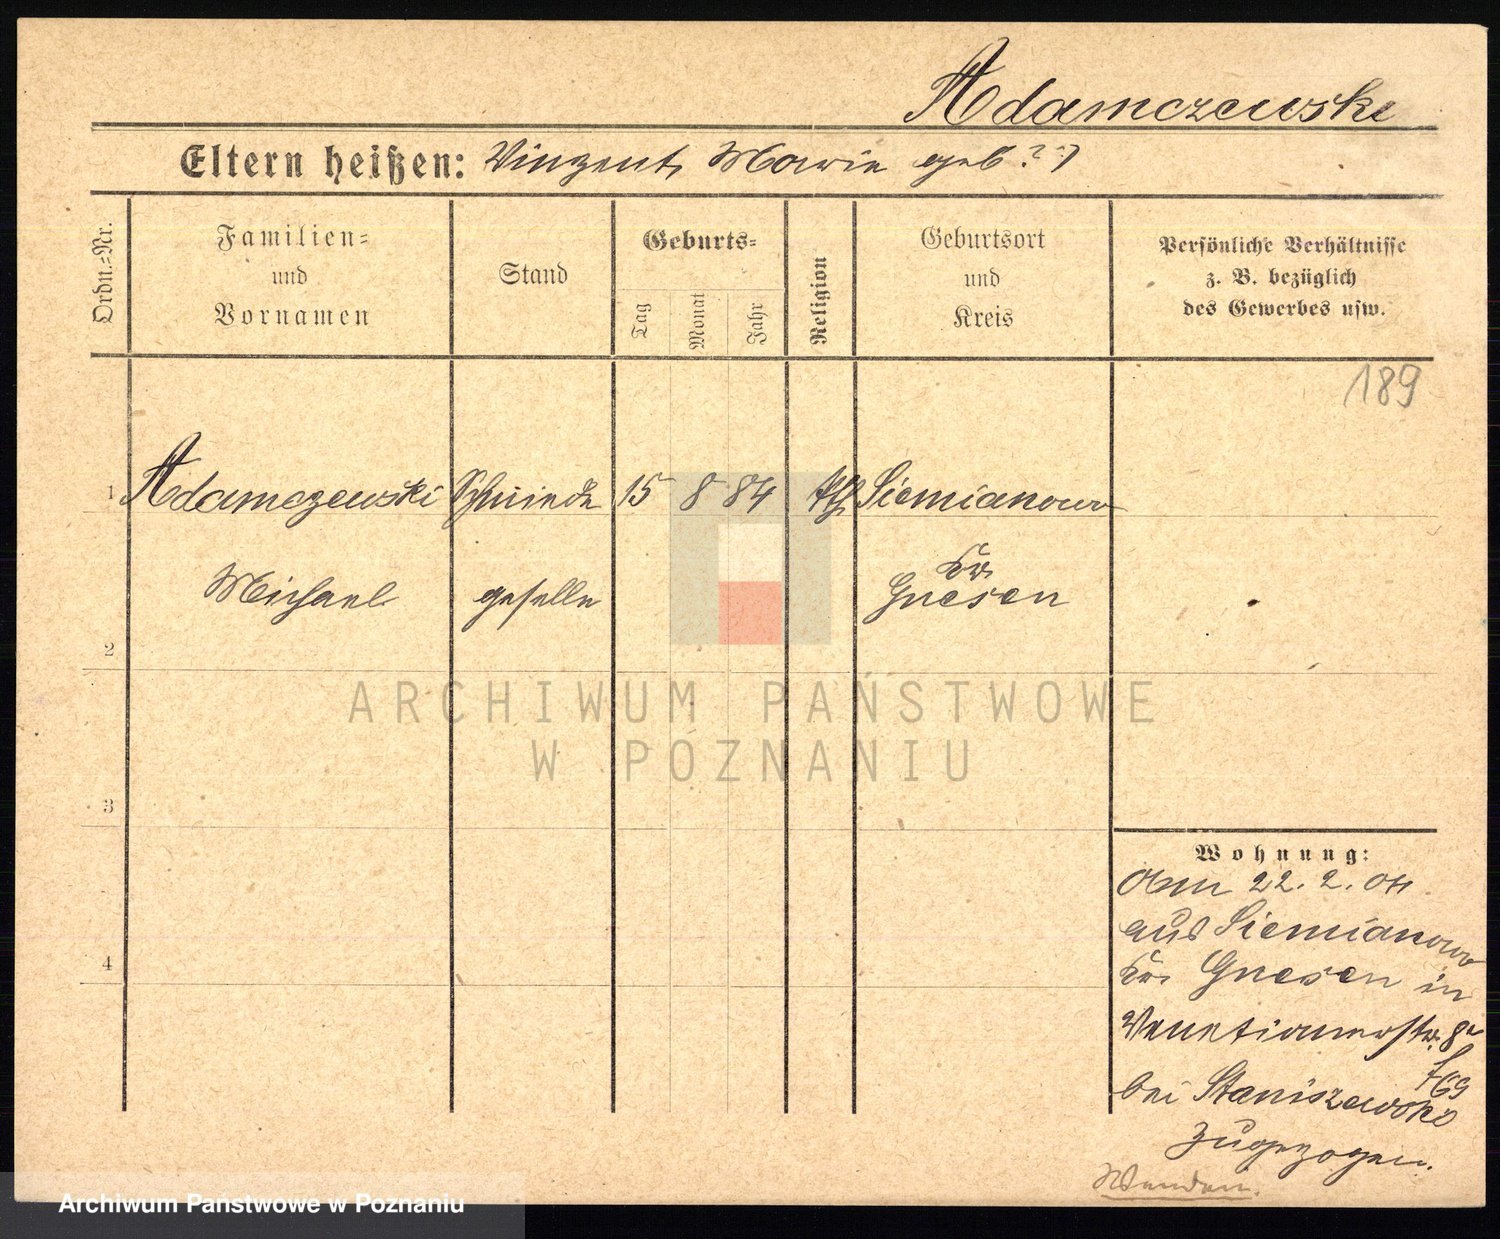 Adamczewski
Eltern heißen: Vinzent, Marie geb. ?)
Ordn.=Nr.
Familien=
und
Vornamen
Stand
Geburts=
Tag
Monat
Jahr
Religion
Geburtsort
und
Kreis
Persönliche Verhältnisse
z. B. bezüglich
des Gewerbes usw.
189
1 Adamczewski Schmiede 15 8 84 kth Siemianowo
Kr.
Michael geselle Gnesen
2
ARCHIWUM PAŃSTWOWE
W POZNANIU
3
4
Wohnung:
Am 22. 2. 04
aus Siemianowo
Kr. Gnesen in
Venetianerstr. 8a
bei Staniszewski
zugezogen.
Wenden.
Archiwum Państwowe w Poznaniu